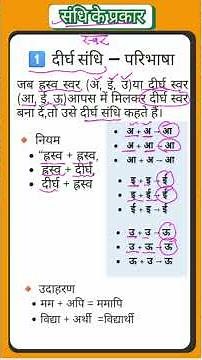 संधि के प्रकार
स्वर
1 दीर्घ संधि – परिभाषा
जब ह्रस्व स्वर (अ, इ, उ)या दीर्घ स्वर
(आ, ई, ऊ)आपस में मिलकर दीर्घ स्वर
बना दे,तो उसे दीर्घ संधि कहते हैं।
नियम
"ह्रस्व + ह्रस्व,
ह्रस्व + दीर्घ,
दीर्घ + ह्रस्व
अ + अ → आ
अ + आ → आ
आ + अ → आ
इ + इ → ई
इ + ई → ई
ई + इ → ई
उ + उ → ऊ
उ + ऊ → ऊ
ऊ + उ → ऊ
उदाहरण
मम + अपि = ममापि
विद्या + अर्थी =विद्यार्थी